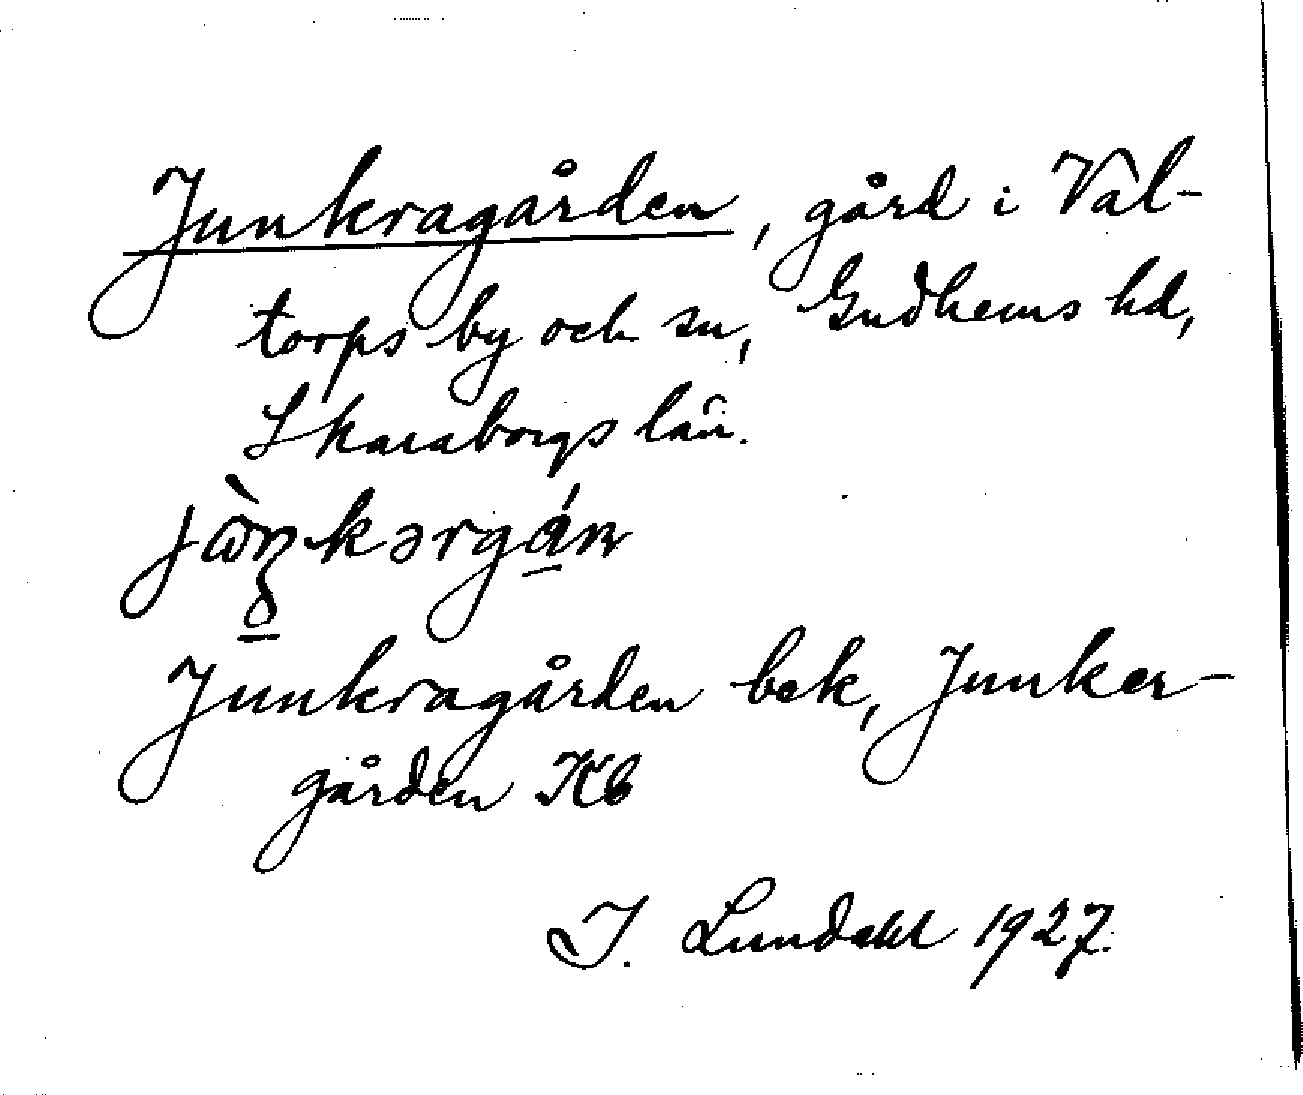 Junkragården, gård i Val-
torps by och sn, Gudhems hd,
Skaraborgs län.
Junkragården bek, Junker-
gården Kb
I. Lundahl 1927.